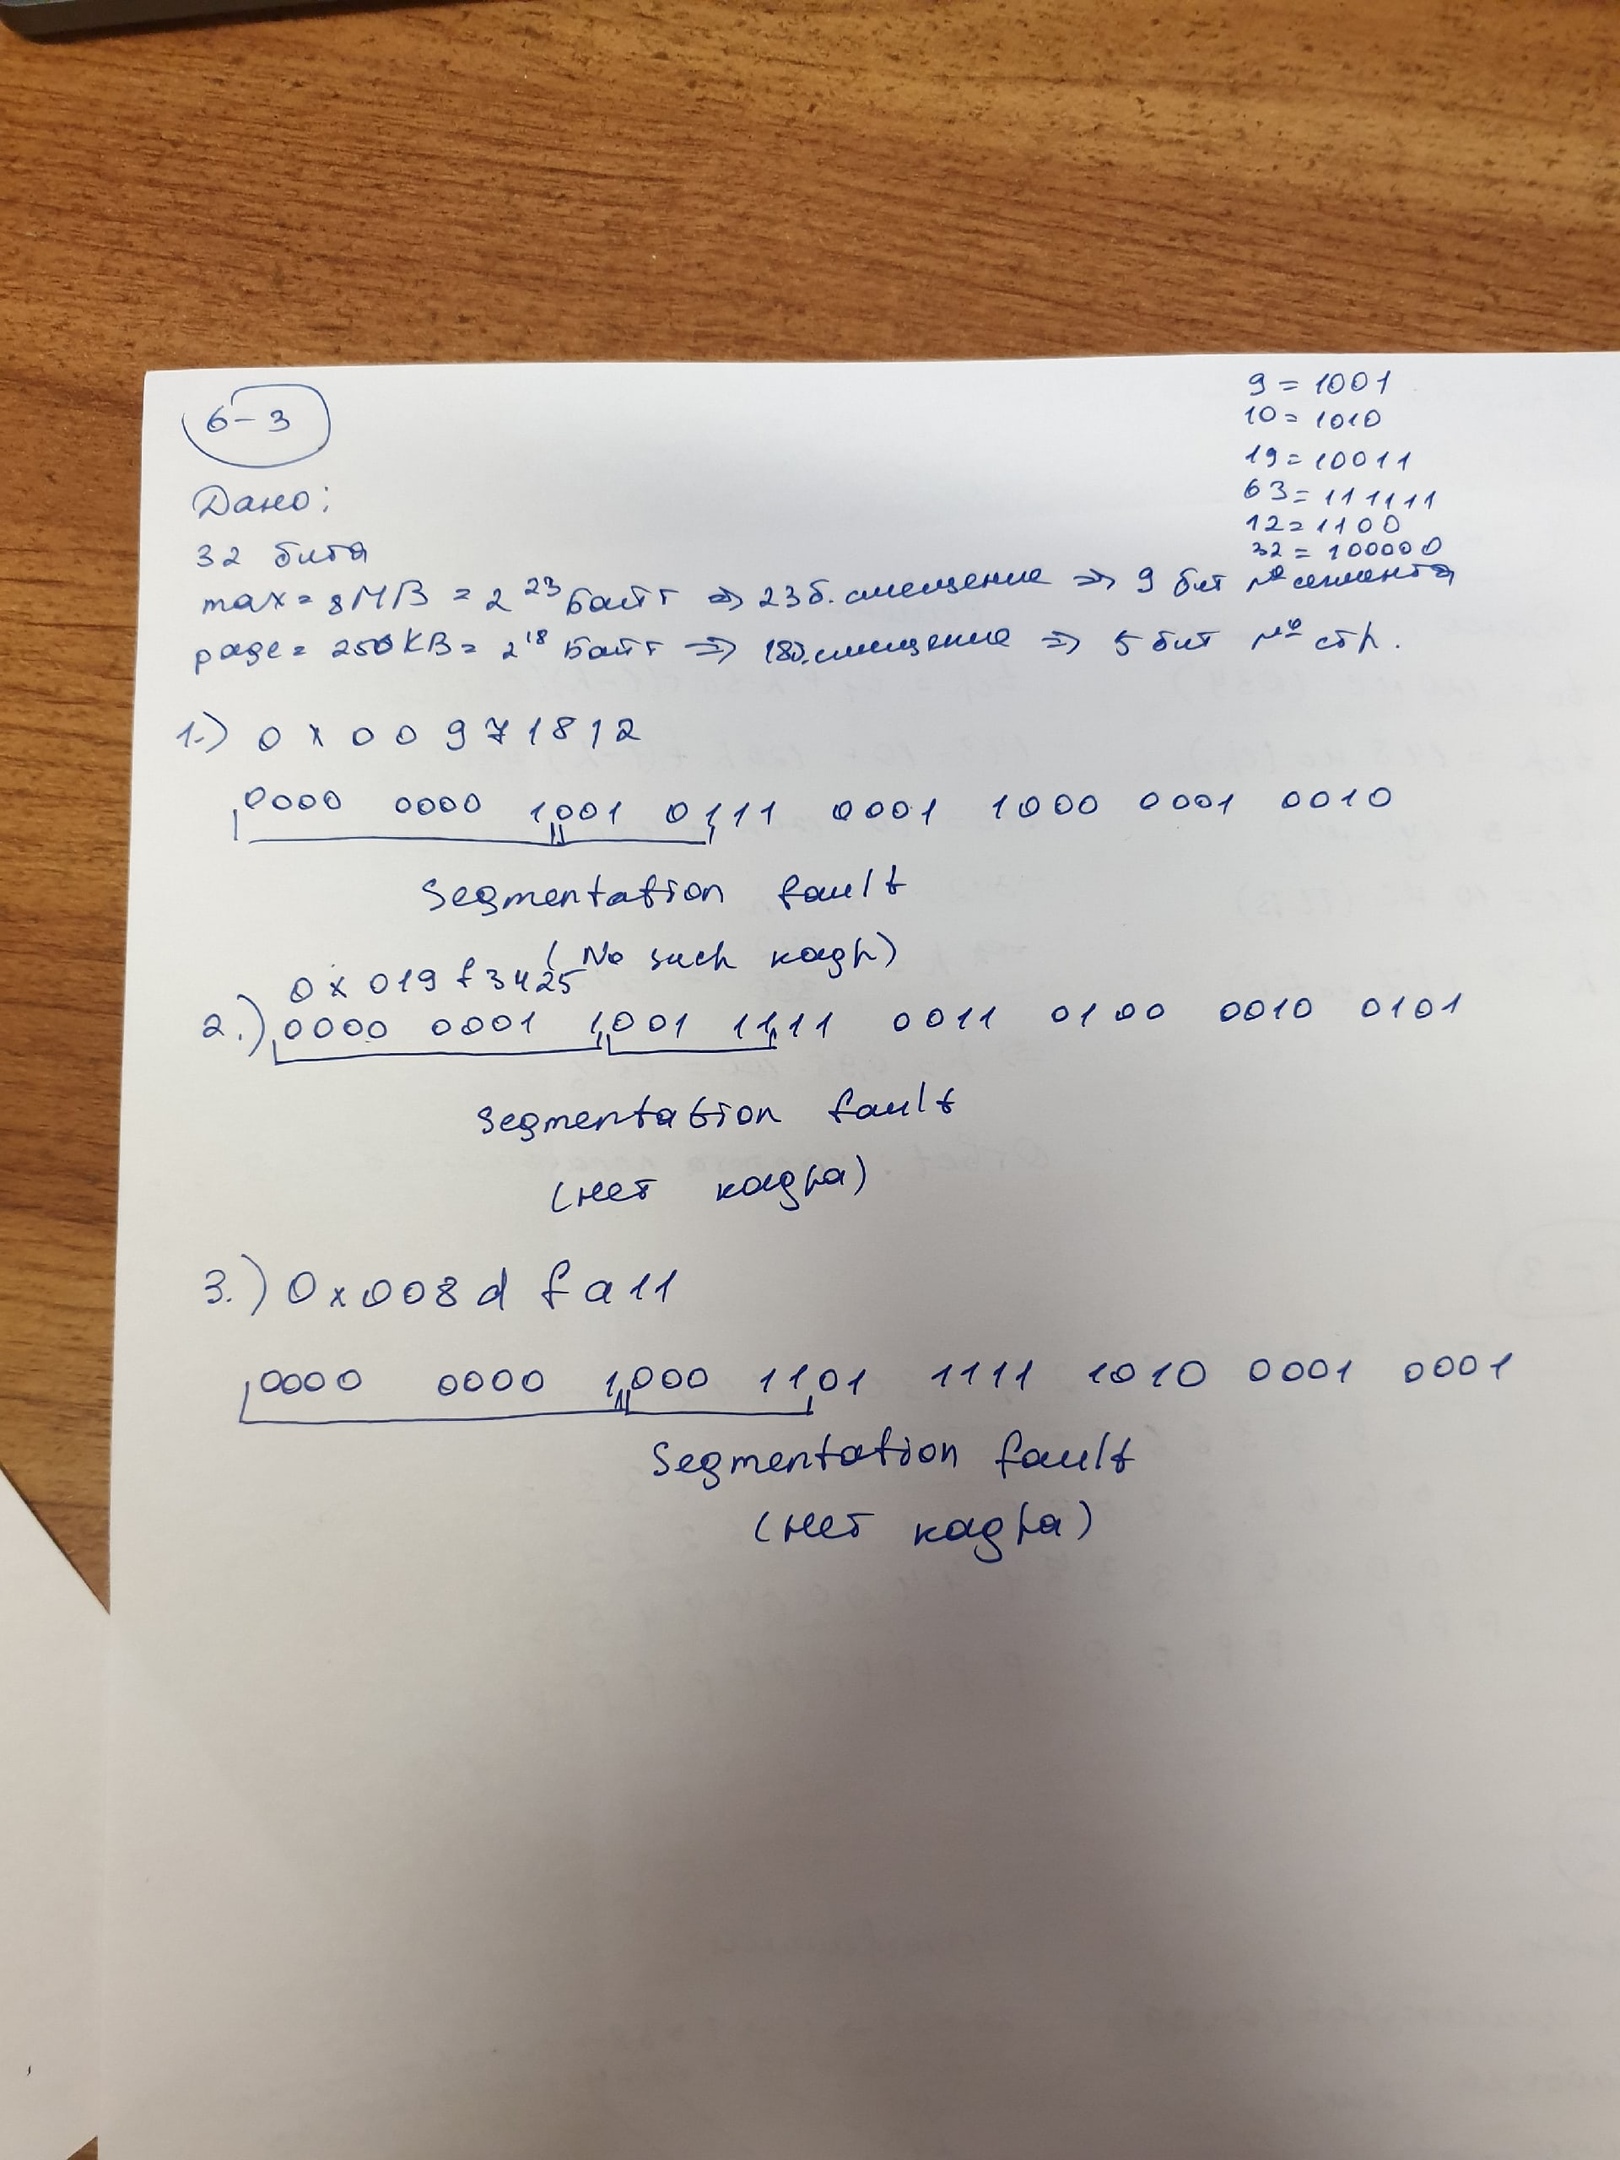 6-3
9 = 1001
10 = 1010
19 = 10011
63 = 111111
12 = 1100
32 = 100000
Дано:
32 бита
max = 8MB = 2²³ Байт => 23б. смещение => 9 бит № сегмента
page = 256KB = 2¹⁸ Байт => 18б. смещение => 5 бит № стр.
1.) 0x00971812
0000 0000 1001 0111 0001 1000 0001 0010
Segmentation fault
(No such кадр)
0x019f3425
2.) 0000 0001 1001 1111 0011 0100 0010 0101
Segmentation fault
(нет кадра)
3.) 0x008dfa11
0000 0000 1000 1101 1111 1010 0001 0001
Segmentation fault
(нет кадра)